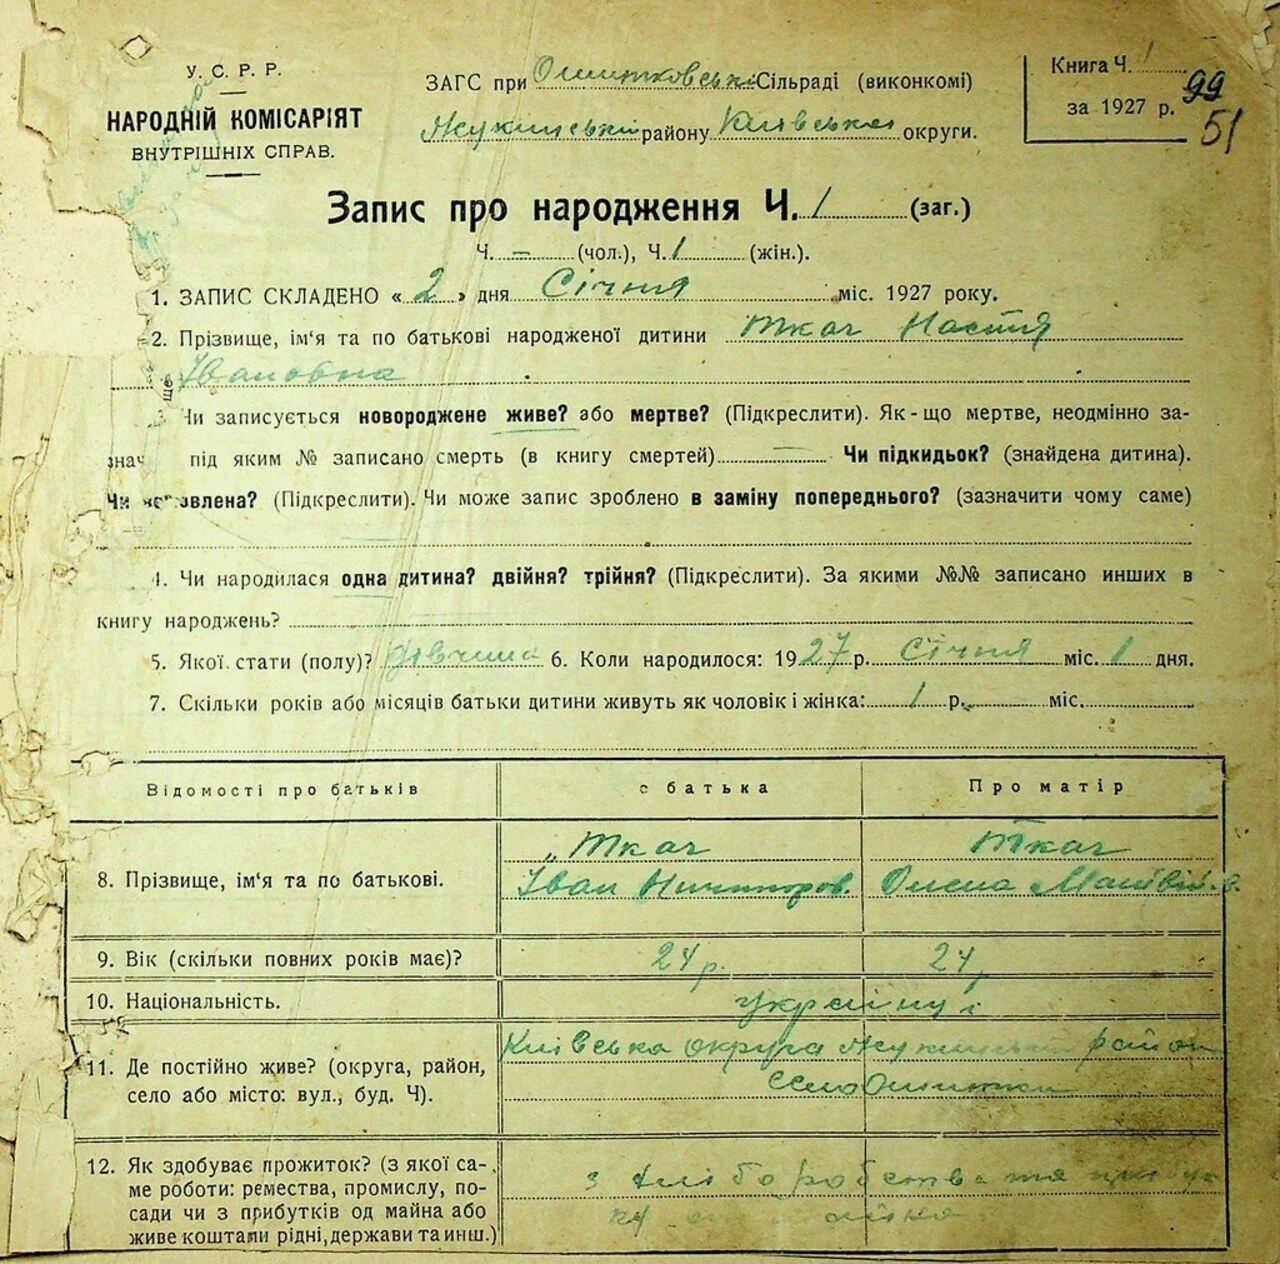 У. С. Р. Р.
НАРОДНІЙ КОМІСАРІЯТ
ВНУТРІШНІХ СПРАВ.
ЗАГС при Ошитковській Сільраді (виконкомі)
Жукинський району Київської округи.
Книга Ч. 1
за 1927 р.
99
51
Запис про народження Ч. 1 (заг.)
Ч. – (чол.), Ч. 1 (жін.).
1. ЗАПИС СКЛАДЕНО « 2 » дня Січня міс. 1927 року.
2. Прізвище, ім'я та по батькові народженої дитини Ткач Настя
Івановна
Чи записується новороджене живе? або мертве? (Підкреслити). Як-що мертве, неодмінно за-
знач під яким № записано смерть (в книгу смертей) – Чи підкидьок? (знайдена дитина).
Чи явлена? (Підкреслити). Чи може запис зроблено в заміну попереднього? (зазначити чому саме)
4. Чи народилася одна дитина? двійня? трійня? (Підкреслити). За якими №№ записано инших в
книгу народжень?
5. Якої стати (полу)? дівчина 6. Коли народилося: 1927 р. Січня міс. 1 дня.
7. Скільки років або місяців батьки дитини живуть як чоловік і жінка: 1 р. – міс.
Відомості про батьків
о батька
Про матір
8. Прізвище, ім'я та по батькові.
Ткач
Іван Ничипоров.
Ткач
Олена Матвій
9. Вік (скільки повних років має)?
24 р.
24
10. Національність.
українці
11. Де постійно живе? (округа, район,
село або місто: вул., буд. Ч).
Київська округа Жукинський район
село Ошитки
12. Як здобуває прожиток? (з якої са-
ме роботи: ремества, промислу, по-
сади чи з прибутків од майна або
живе коштами рідні, держави та инш.)
з хліборобства та прибут
ку